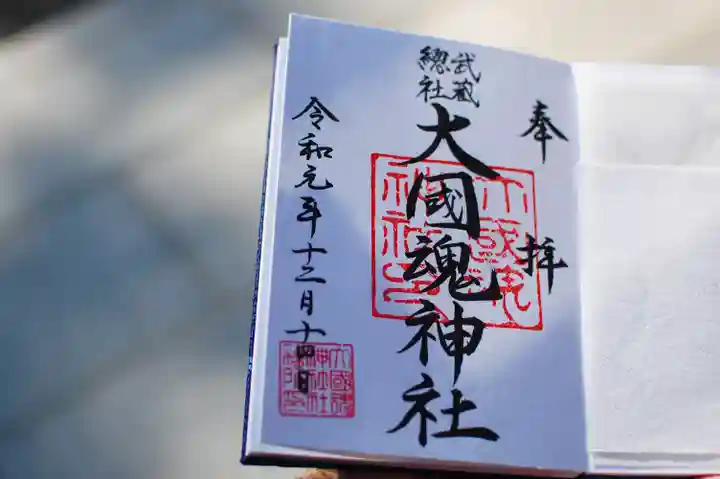 奉拝
武蔵
總社
大國魂神社
令和元年十二月十四日